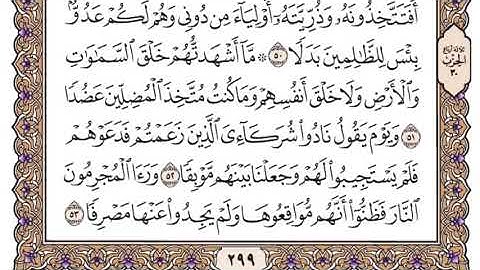 أَفَتَتَّخِذُونَهُۥ وَذُرِّيَّتَهُۥٓ أَوْلِيَآءَ مِن دُونِي وَهُمْ لَكُمْ عَدُوُّۢ
بِئْسَ لِلظَّٰلِمِينَ بَدَلًا ٥٠ ۞ مَّآ أَشْهَدتُّهُمْ خَلْقَ ٱلسَّمَٰوَٰتِ
وَٱلْأَرْضِ وَلَا خَلْقَ أَنفُسِهِمْ وَمَا كُنتُ مُتَّخِذَ ٱلْمُضِلِّينَ عَضُدًا
٥١ وَيَوْمَ يَقُولُ نَادُوا۟ شُرَكَآءِيَ ٱلَّذِينَ زَعَمْتُمْ فَدَعَوْهُمْ
فَلَمْ يَسْتَجِيبُوا۟ لَهُمْ وَجَعَلْنَا بَيْنَهُم مَّوْبِقًا ٥٢ وَرَءَا ٱلْمُجْرِمُونَ
ٱلنَّارَ فَظَنُّوٓا۟ أَنَّهُم مُّوَاقِعُوهَا وَلَمْ يَجِدُوا۟ عَنْهَا مَصْرِفًا ٥٣
٢٩٩
الحزب
٣٠